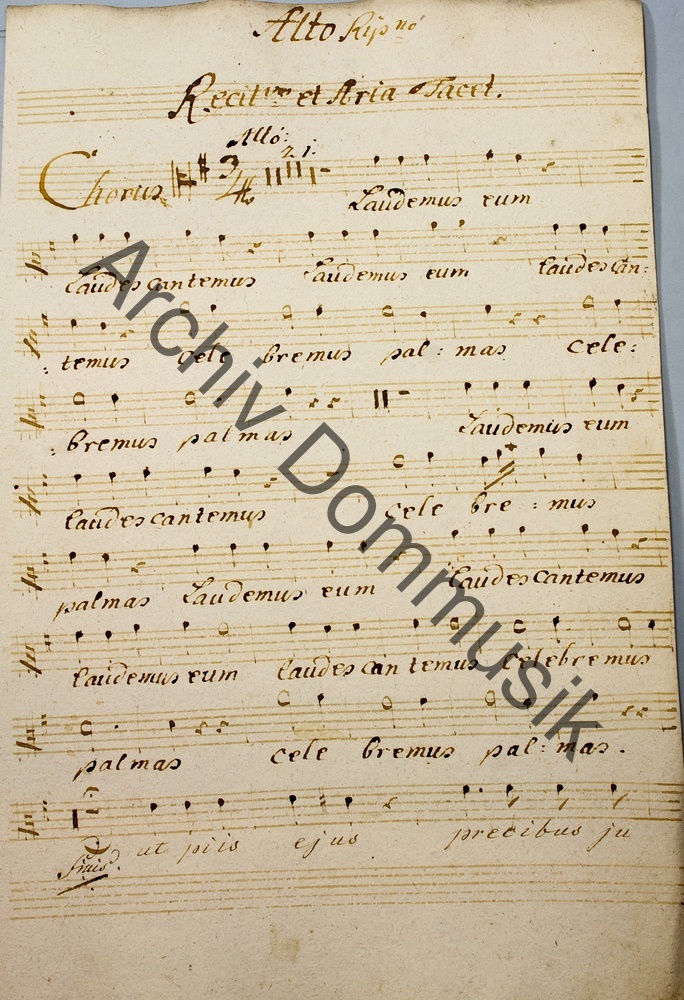 Alto Rip:nó
Recit:vo et Aria Tacet.
Allo:
2. 1.
Chorus 3/4 Laudemus eum
laudes cantemus Laudemus eum laudes Can:
: temus cele bremus pal: mas cele:
: bremus palmas Laudemus eum
laudes cantemus cele bre: mus
palmas Laudemus eum laudes cantemus
laudemus eum laudes can temus celebremus
palmas cele bremus pal: mas.
ut piis ejus precibus ju
Archiv Dommusik